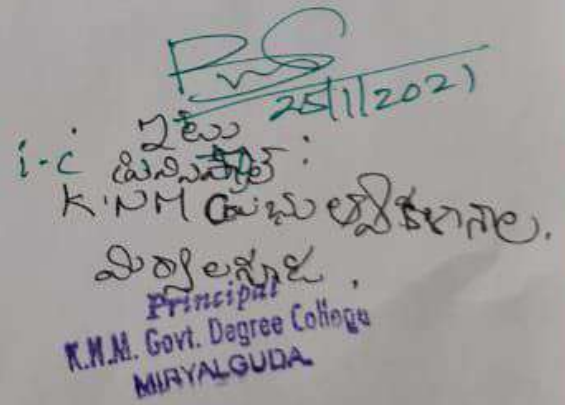 25/1/2021
ఇట్లు
i-c ప్రిన్సిపాల్ :
K.NM ప్రభుత్వ కళాశాల.
మిర్యాలగూడ.
Principal
K.N.M. Govt. Degree College
MIRYALGUDA